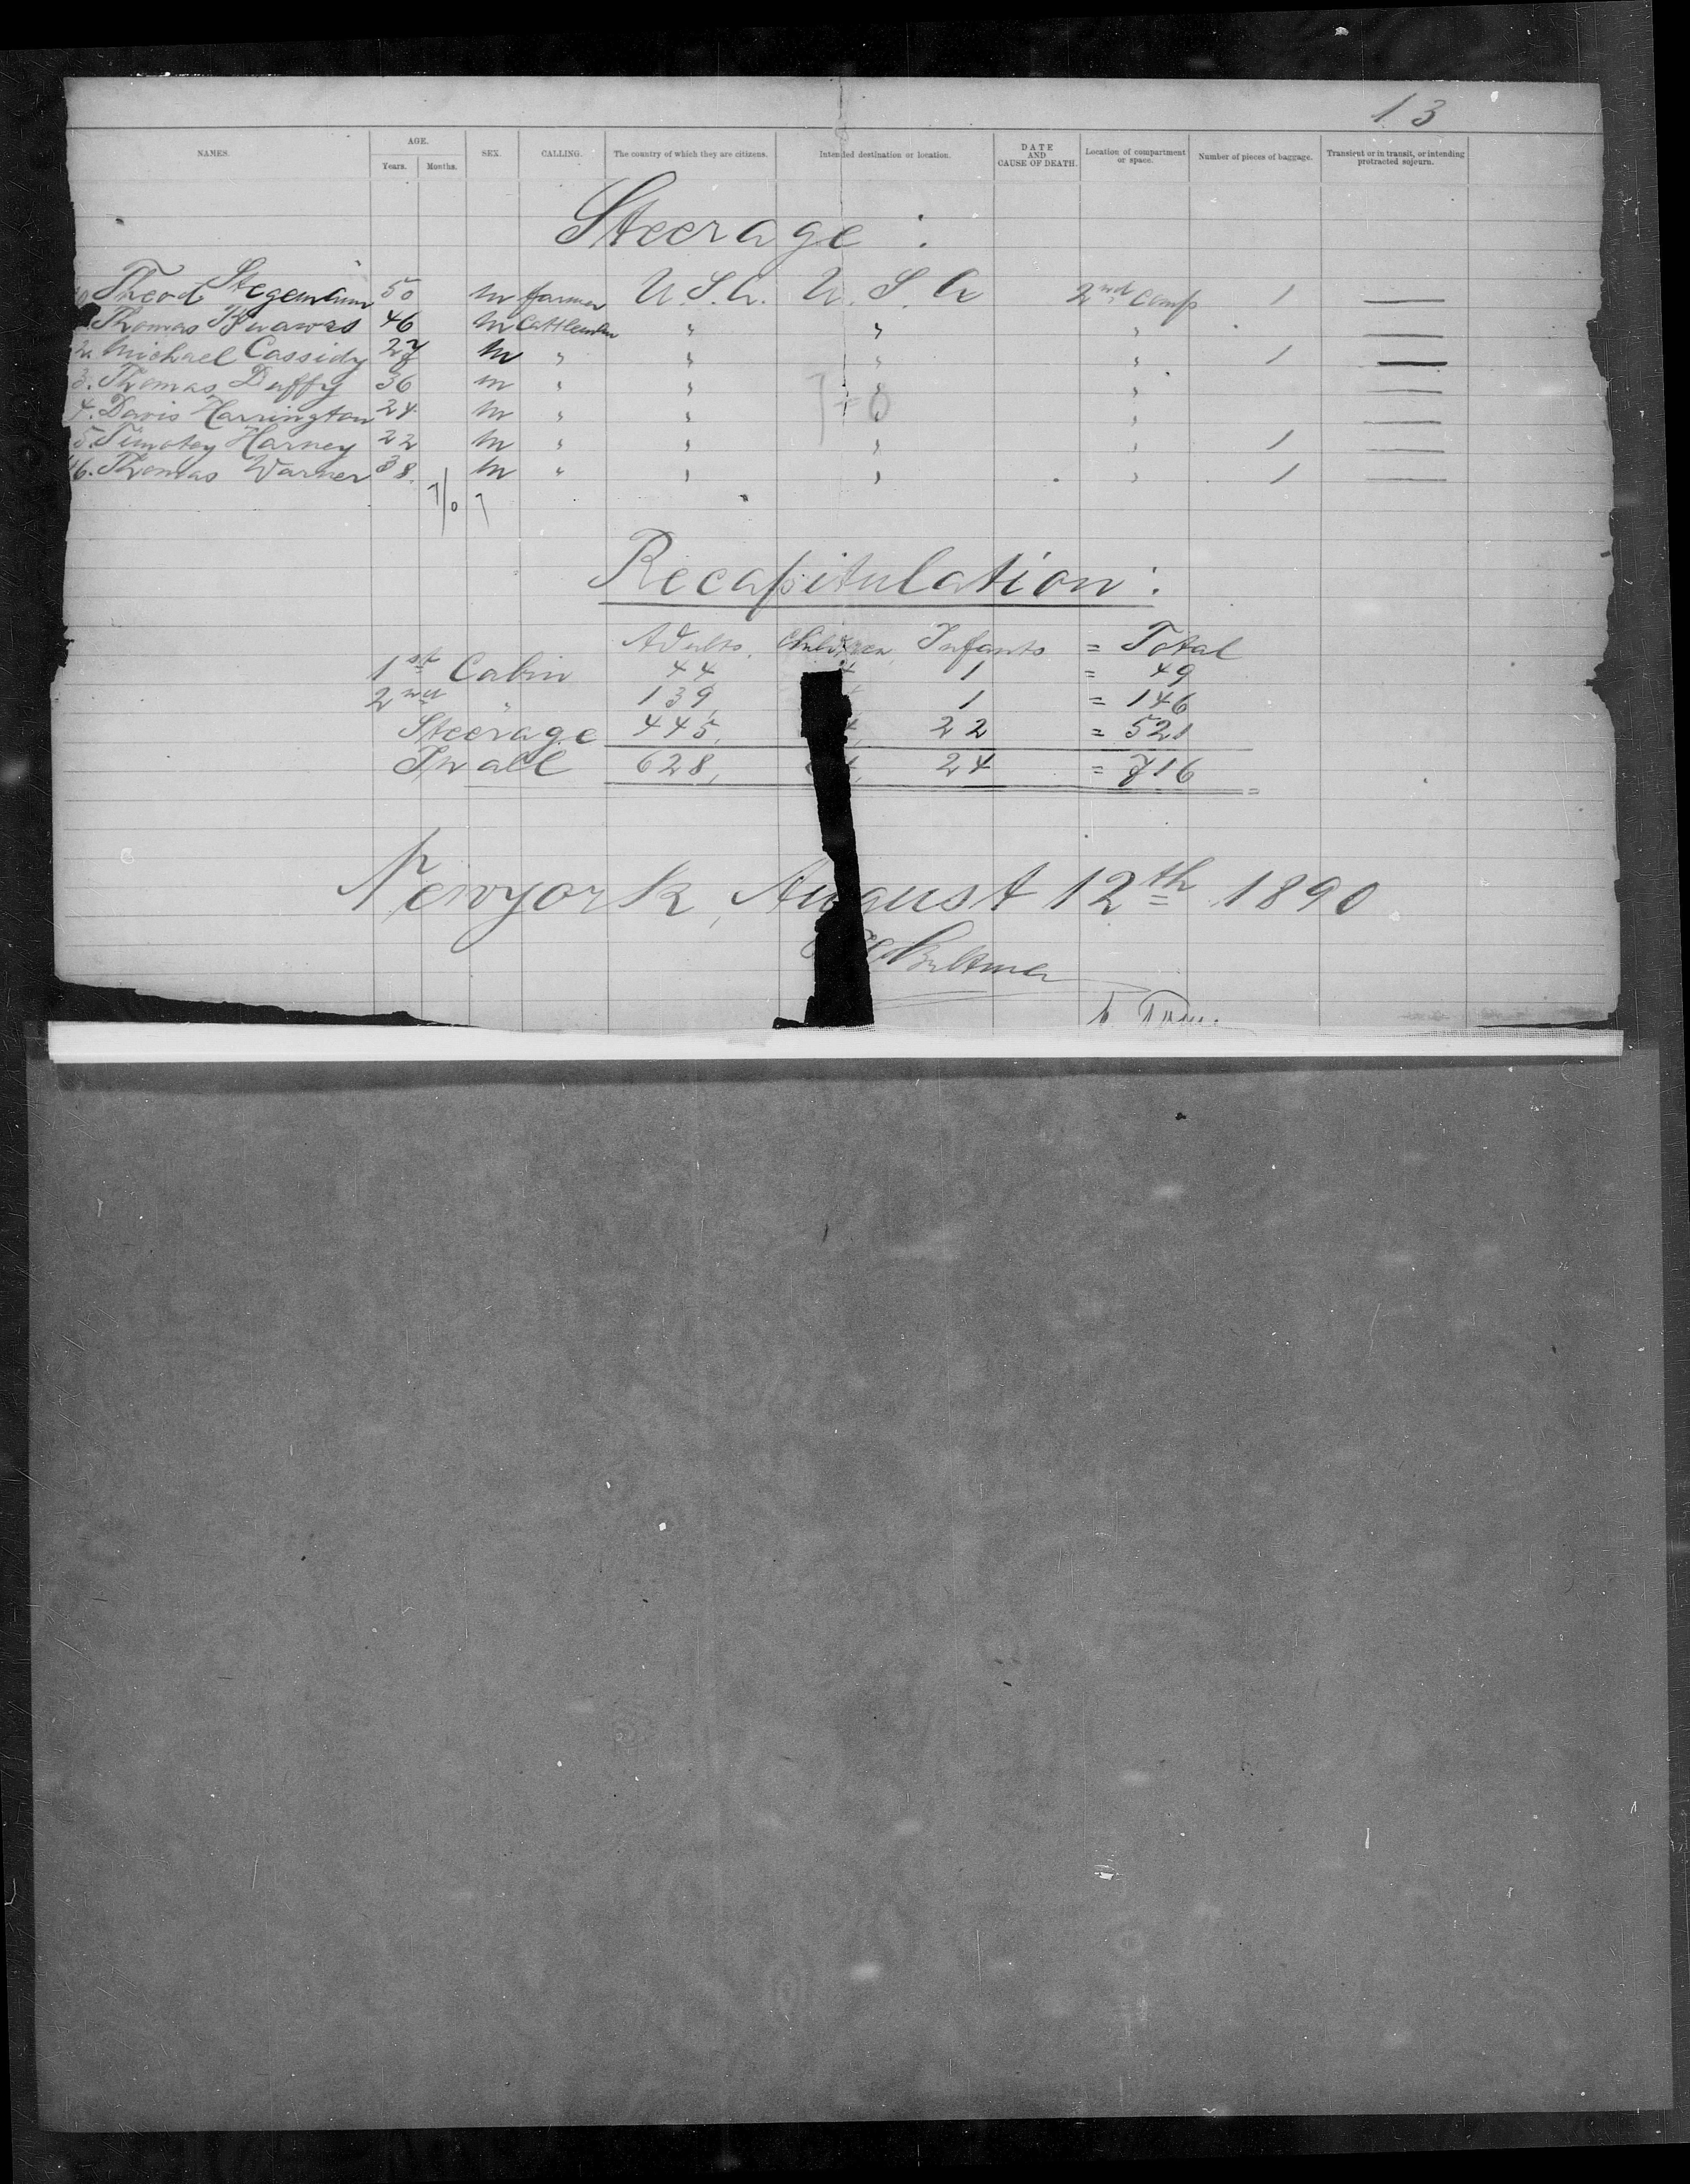 13
NAMES. AGE. Years. Months. SEX. CALLING. The country of which they are citizens. Intended destination or location. DATE AND CAUSE OF DEATH. Location of compartment or space. Number of pieces of baggage. Transient or in transit, or intending protracted sojourn.
Steerage :
Theod Stegemann 50 m farmer U.S.A. U.S.A 2nd Comp 1 —
Thomas 46 m Cattleman " " " —
2. Michael Cassidy m " " " " 1 —
3. Thomas Duffy 36 m " " " " —
4. Davis Harrington 24 m " " " " —
5. Timotey Harney 22 m " " " " 1 —
16. Thomas Warner 38. m " " " " 1 —
Recapitulation :
Adults, Children, Infants = Total
1st Cabin 44 4 1 = 49
2nd " 139, 1 = 146
Steerage 445, 4, 22 = 521
In all 628, 4, 24 = 716
Newyork, August 12th 1890